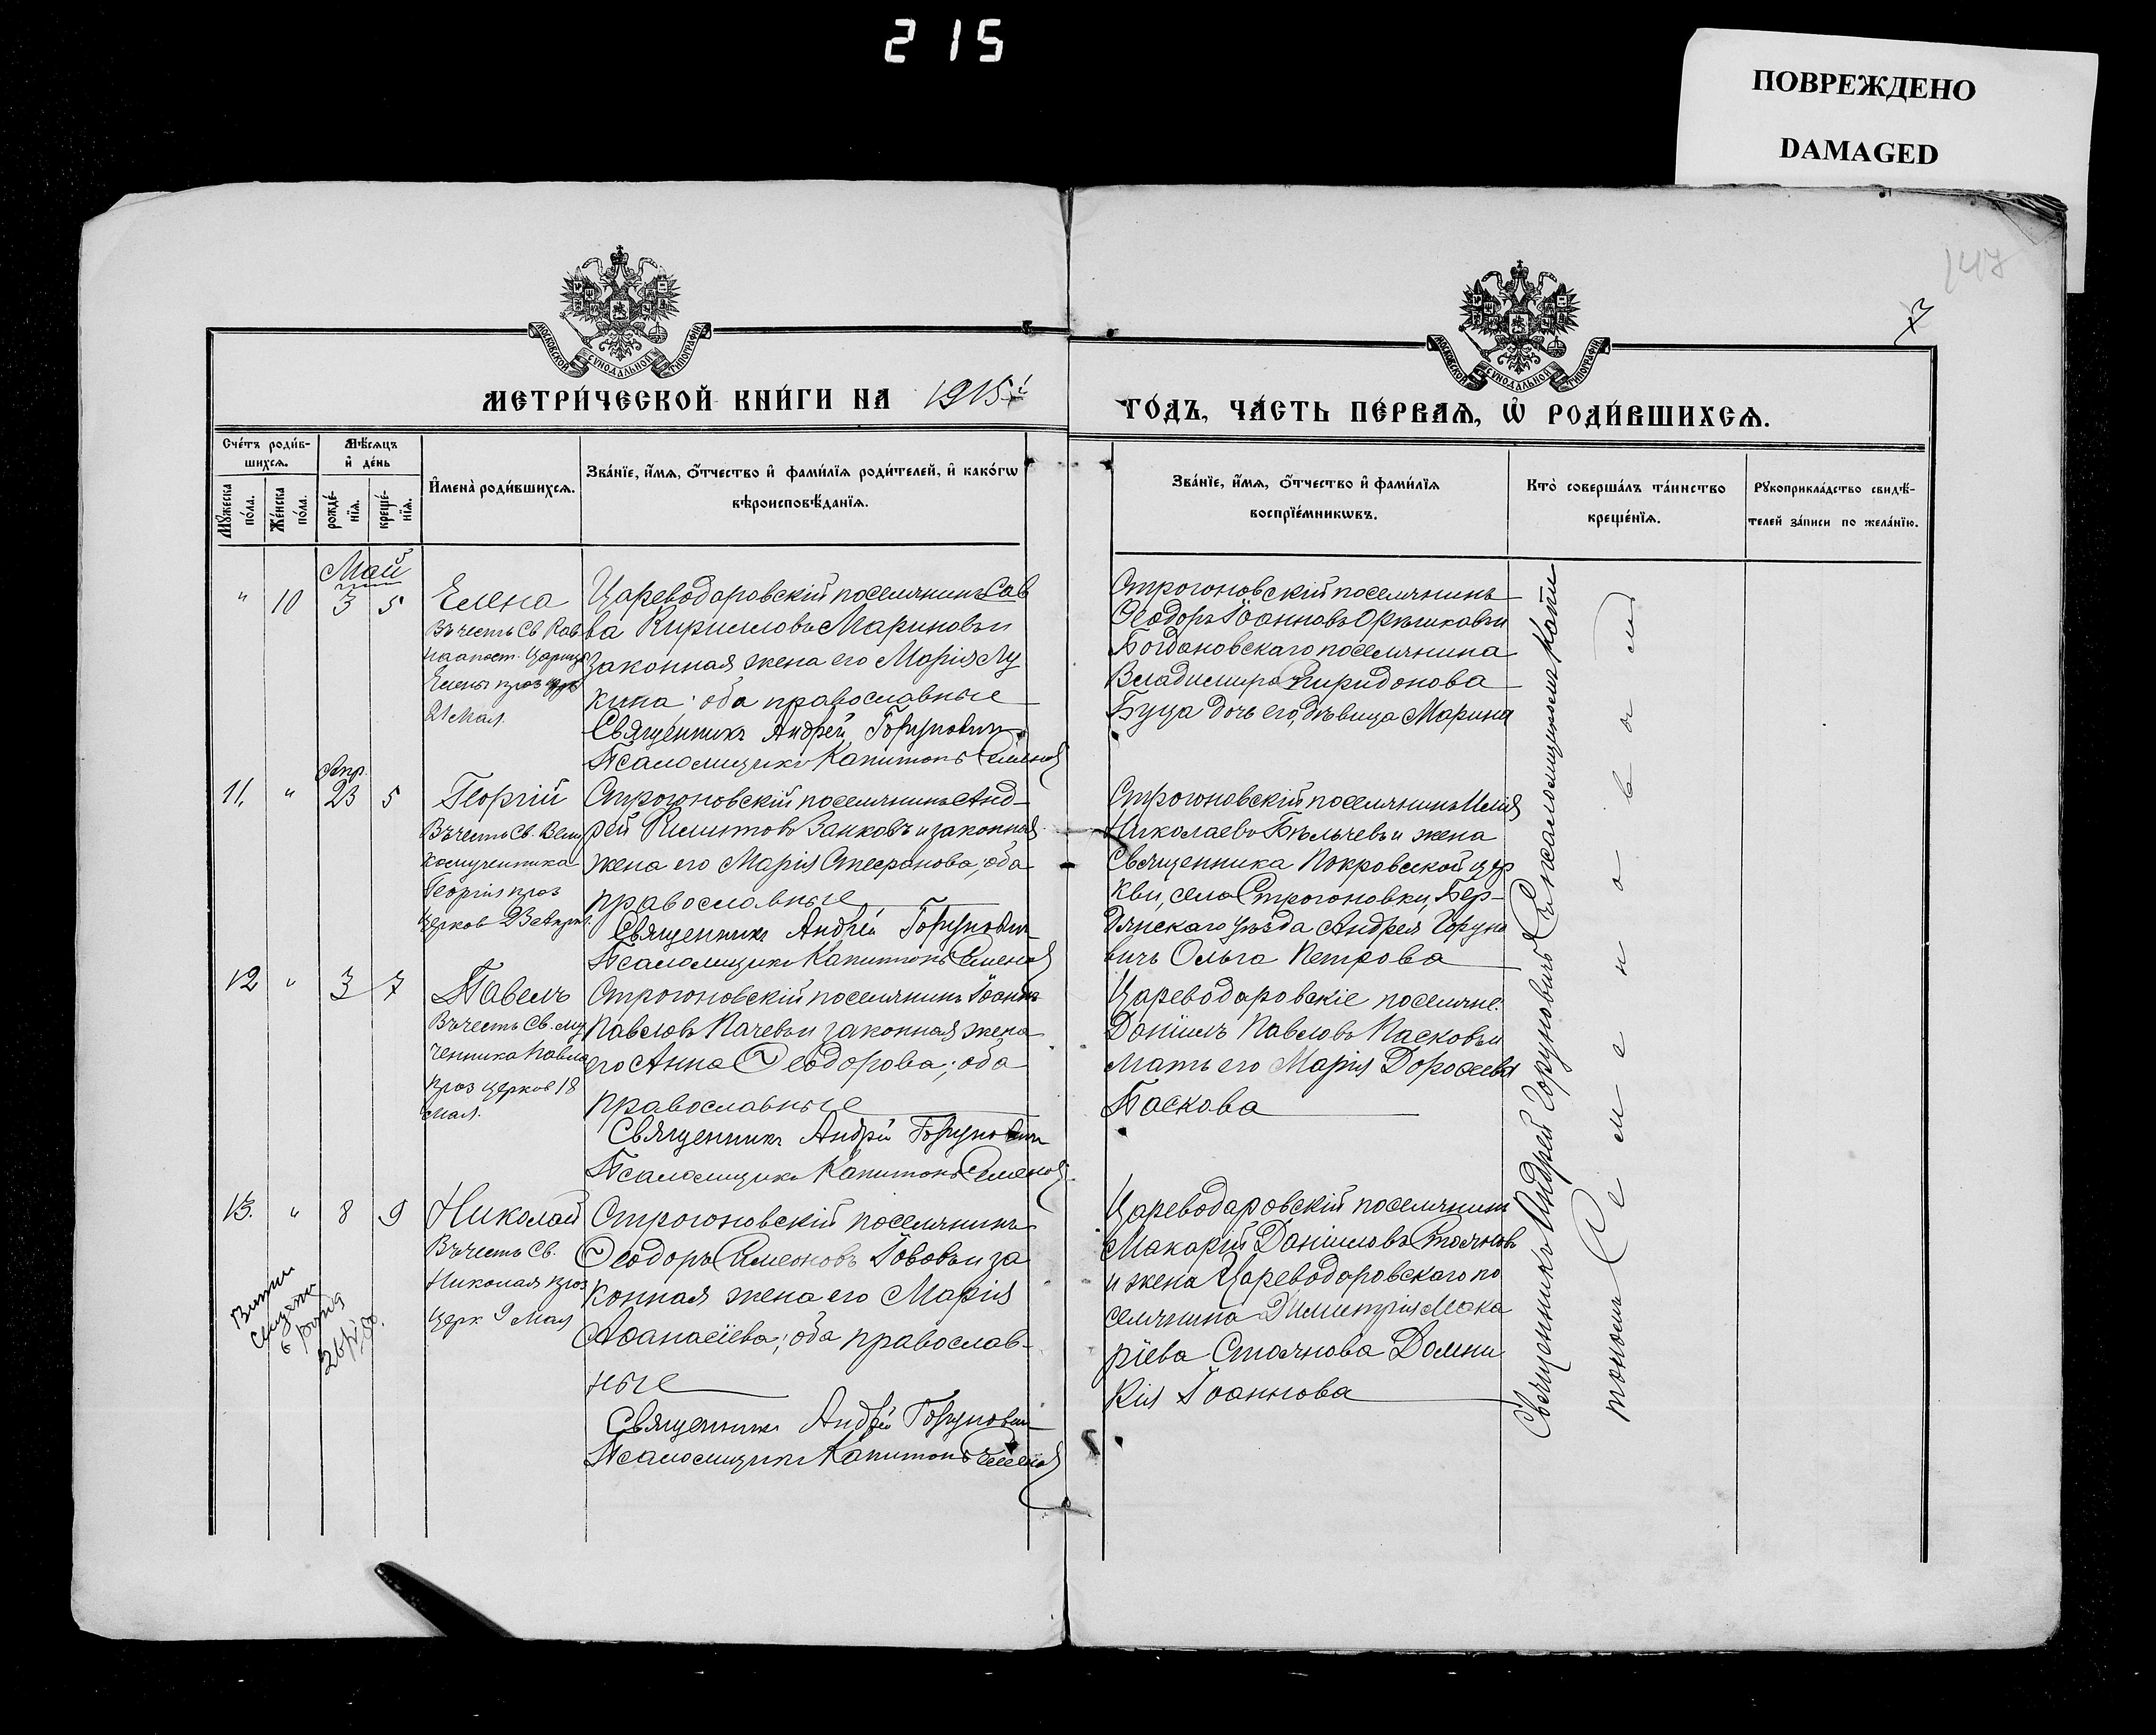 215
ПОВРЕЖДЕНО
DAMAGED
147
7
МОСКОВСКОЙ СУНОДАЛЬНОЙ ТИПОГРАФІИ
МОСКОВСКОЙ СУНОДАЛЬНОЙ ТИПОГРАФІИ
МЕТРИ́ЧЕСКОЙ КНИ́ГИ НА 1915й
ГО́ДЪ, ЧА́СТЬ ПЕ́РВАѦ, Ѡ҆ РОДИ́ВШИХСѦ.
Сче́тъ роди́в-
шихсѧ.
Мѣ́сѧцъ
и҆ де́нь
Мꙋ́жеска по́ла.
Же́нска по́ла.
рожде́-
нїѧ.
креще́-
нїѧ.
И҆мена̀ роди́вшихсѧ.
Зва́нїе, и҆́мѧ, ѻ҆́тчество и҆ фами́лїѧ роди́телей, и҆ како́гѡ
вѣроисповѣ́данїѧ.
Зва́нїе, и҆́мѧ, ѻ҆́тчество и҆ фами́лїѧ
воспрїе́мникѡвъ.
Кто̀ соверша́лъ та́инство
креще́нїѧ.
Рꙋкоприкла́дство свидѣ́-
телей за́писи по жела́нїю.
Май
" 10 3 5
Елена
Въ честь Св. Рав
ноапост. Царицы
Елены праз
21 Мая.
Цареводаровскій поселянинъ Сав
ва Кирилловъ Мариновъ и
законная жена его Марія Лу
кина; оба православные
Священникъ Андрей Горунович
Псаломщикъ Капитонъ Семенов
Строгоновскій поселянинъ
Ѳеодоръ Іоанновъ Орѣшковъ и
Богдановскаго поселянина
Владимира Спиридонова
Буца дочь его, дѣвица Марина
Апр.
11. " 23 5
Георгій
Въ честь Св. Вели
комученика
Георгія праз
церков 23 апрѣл.
Строгоновскій поселянинъ Анд-
рей Филиповъ Занковъ и законная
жена его Марія Стефанова; оба
православные
Священникъ Андрей Горунович
Псаломщикъ Капитонъ Семенов
Строгоновскій поселянинъ Илія
Николаевъ Бѣльчевъ и жена
священника Покровской цер
кви, села Строгоновки, Бер-
дянскаго уѣзда Андрея Горуно
вичъ Ольга Петрова
12 " 3 7
Павелъ
Въ честь Св. му
ченника Павла
праз церков 18
мая.
Строгоновскій поселянинъ Іоаннъ
Павловъ Пачевъ и законная жена
его Анна Ѳеодорова; оба
православные
Священникъ Андрей Горунович
Псаломщикъ Капитонъ Семенов
Цареводаровскіе поселяне:
Даніилъ Павловъ Пасковъ и
мать его Марія Дороѳеева
Паскова
13. " 8 9
Николай
Въ честь Св.
Николая праз
церк 9 Мая
Строгоновскій поселянинъ
Ѳеодоръ Симеоновъ Гововъ и за
конная жена его Марія
Аѳанасіева; оба православ-
ные
Священникъ Андрей Горунович
Псаломщикъ Капитонъ Семенов
Цареводаровскій поселянинъ
Макарій Даніиловъ Стояновъ
и жена Цареводаровскаго по
селянина Димитрія Мака
ріева Стоянова Домни
кія Іоаннова
Священникъ Андрей Горуновичъ Съ псаломщикомъ Капи
тономъ Семеновымъ